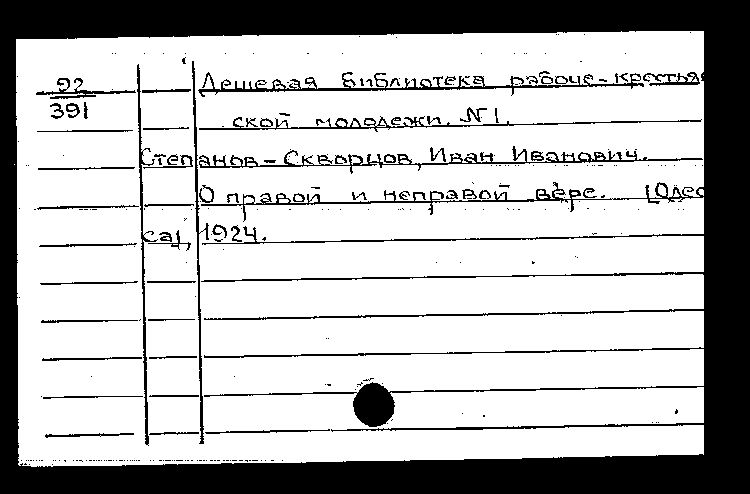 92
391
Дешевая библиотека рабоче-крестьян
ской молодежи. №1.
Степанов-Скворцов, Иван Иванович.
О правой и неправой вере. [Одес
са], 1924.